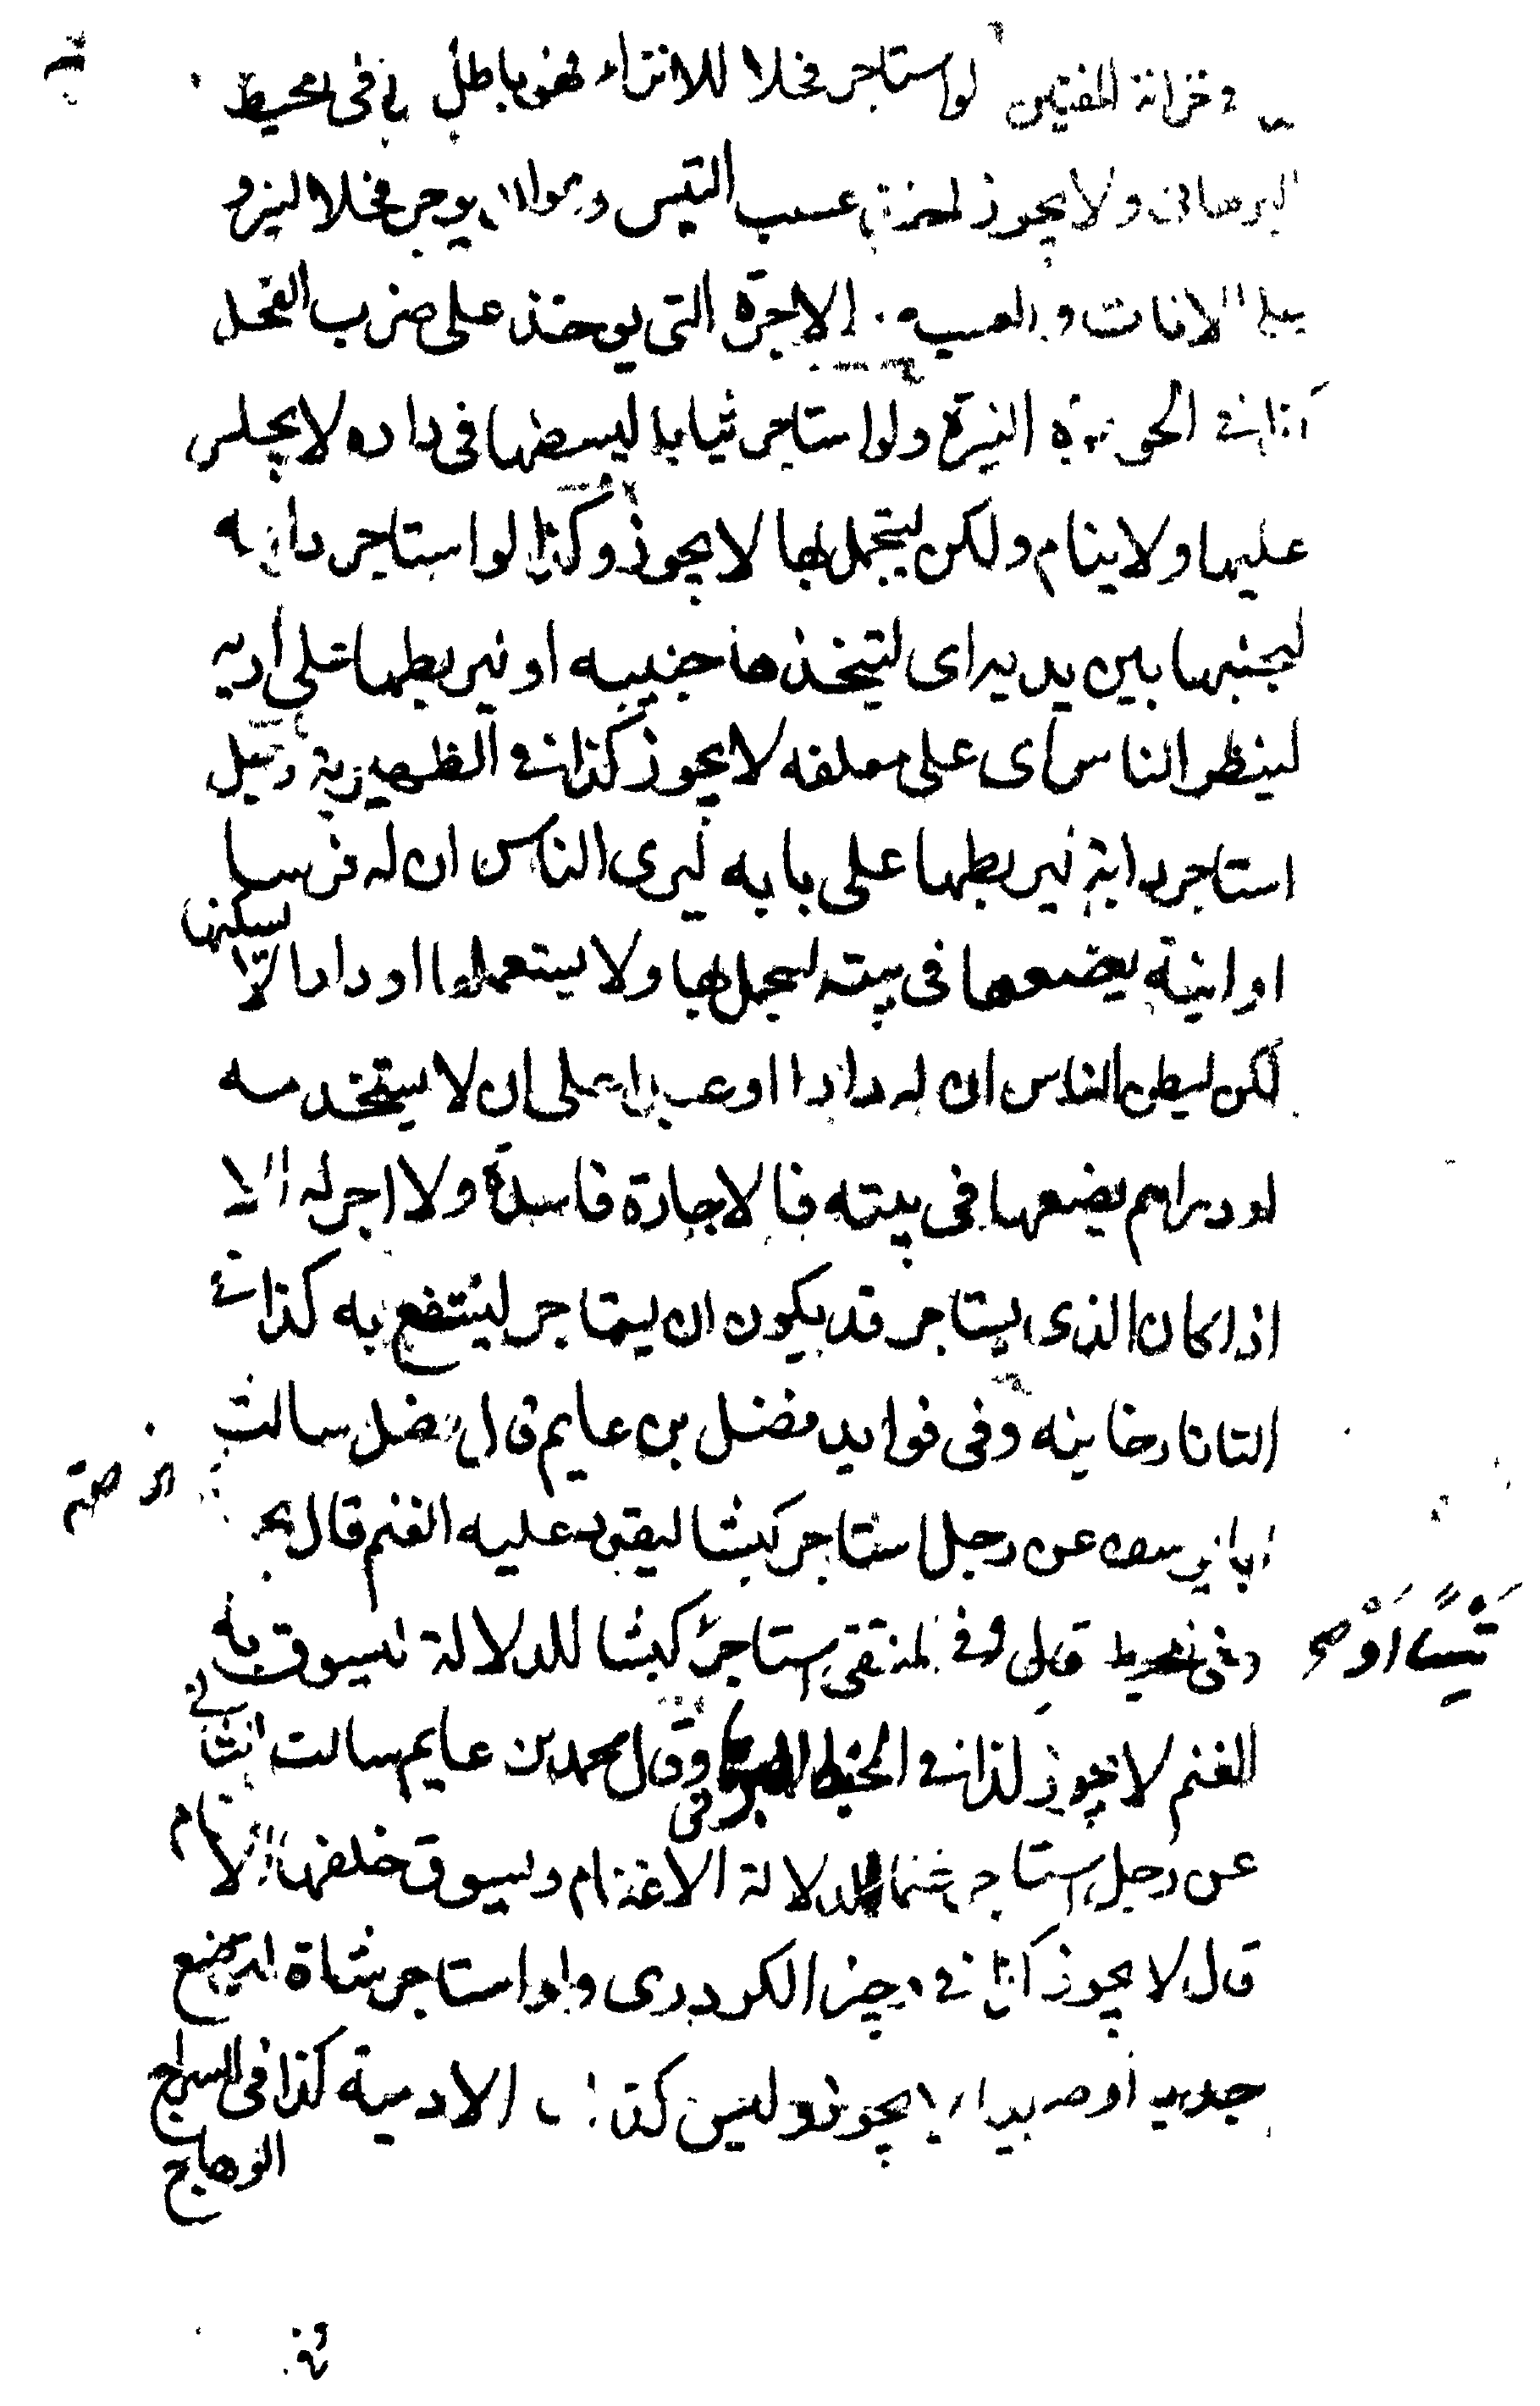 وخزانة المفتين لو استاجر فحلا للانزاء فهو باطل في محيط
البرهاني ولا يجوز اخذ عسب التيس وهو ان يوجر فحلا لينزو
على الاناث والعسب الاجرة التي يوخذ على ضرب الفحل
كذا في الجوهرة النيرة ولو استاجر ثيابا ليبسطها في داره لا يجلس
عليها ولا ينام ولكن ليتجمل بها لا يجوز وكذا لو استاجر دابة
ليجنبها بين يديه اى ليتخذها جنيبه او ليربطها على اريه
لينظر الناس اى على معلفه لا يجوز كذا في الظهيرية رجل
استاجر دابة ليربطها على بابه ليرى الناس ان له فرسا
او انية يضعها في بيته ليتجمل بها ولا يستعملها او دارا لا يسكنها
لكن ليظن الناس ان له دارا او عبدا على ان لا يستخدمه
او دراهم يضعها في بيته فالاجارة فاسدة ولا اجر له الا
اذا كان الذى يستاجر قد يكون ان يستاجر لينتفع به كذا في
التاتارخانيه وفى فوايد فضل بن عايم قال فضل سالت
ابا يوسف عن رجل استاجر كبشا ليقود عليه الغنم قال يجوز
قال وفي المنتقى استاجر كبشا للدلالة ليسوق به
تيسا او صح
الغنم لا يجوز كذا في المحيط وقال محمد بن عايم سالت
عن رجل استاجر غنما للدلالة الاغنام ويسوق خلفها الاغنام
قال لا يجوز كذا في وجيز الكردرى ولو استاجر شاة لترضع
جديا او صبيا لا يجوز وليس كذا الادمية كذا في السراج
الوهاج